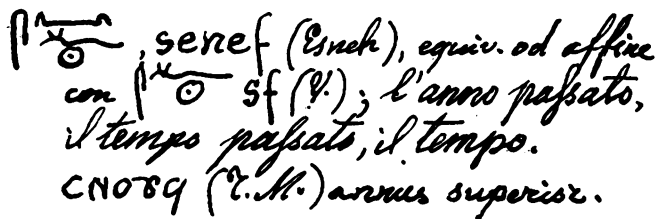 𓋴𓈖𓆑𓇳, senef (Esneh), equiv. od affine
con 𓋴𓆑𓇳 sf (Y.); l'anno paſsato,
il tempo paſsato, il tempo.
ⲥⲛⲟⲩϥ (T.M.) annus superior.